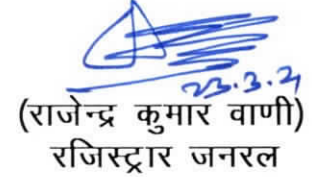 23.3.21
(राजेन्द्र कुमार वाणी)
रजिस्ट्रार जनरल